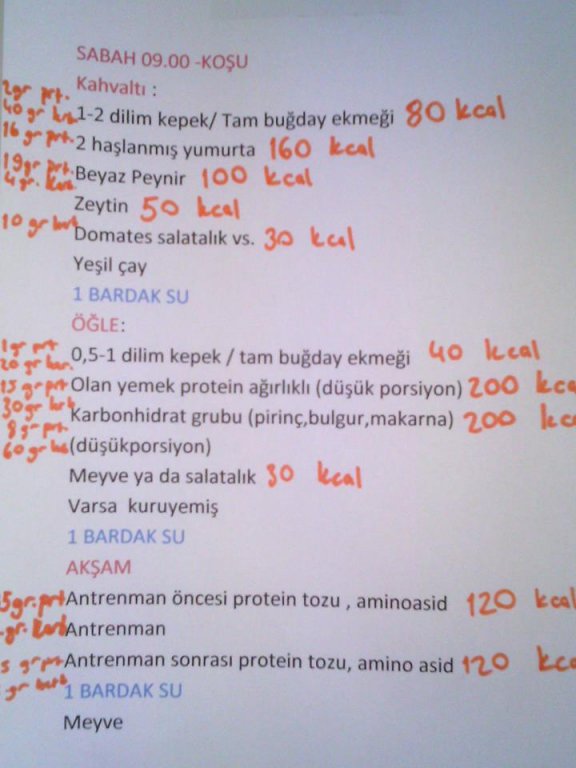 SABAH 09.00 -KOŞU
2gr prt. Kahvaltı :
40 gr krb. 1-2 dilim kepek/ Tam buğday ekmeği 80 kcal
16 gr prt. 2 haşlanmış yumurta 160 kcal
19gr prt. Beyaz Peynir 100 kcal
4 gr. Karb.
Zeytin 50 kcal
10 gr krb Domates salatalık vs. 30 kcal
Yeşil çay
1 BARDAK SU
ÖĞLE:
1gr prt 0,5-1 dilim kepek / tam buğday ekmeği 40 kcal
20 gr kar.
15 gr prt Olan yemek protein ağırlıklı (düşük porsiyon) 200 kca
30gr krb Karbonhidrat grubu (pirinç,bulgur,makarna) 200 kc
8gr prt.
60 gr (düşükporsiyon)
Meyve ya da salatalık 30 kcal
Varsa kuruyemiş
1 BARDAK SU
AKŞAM
5gr.prt Antrenman öncesi protein tozu , aminoasid 120 kcal
gr. Karb Antrenman
5 gr prt Antrenman sonrası protein tozu, amino asid 120 kca
gr 1 BARDAK SU
Meyve